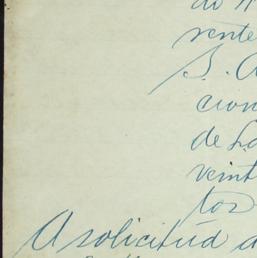 rente
S. A
cion
de La
veint
tos
A solicitud d